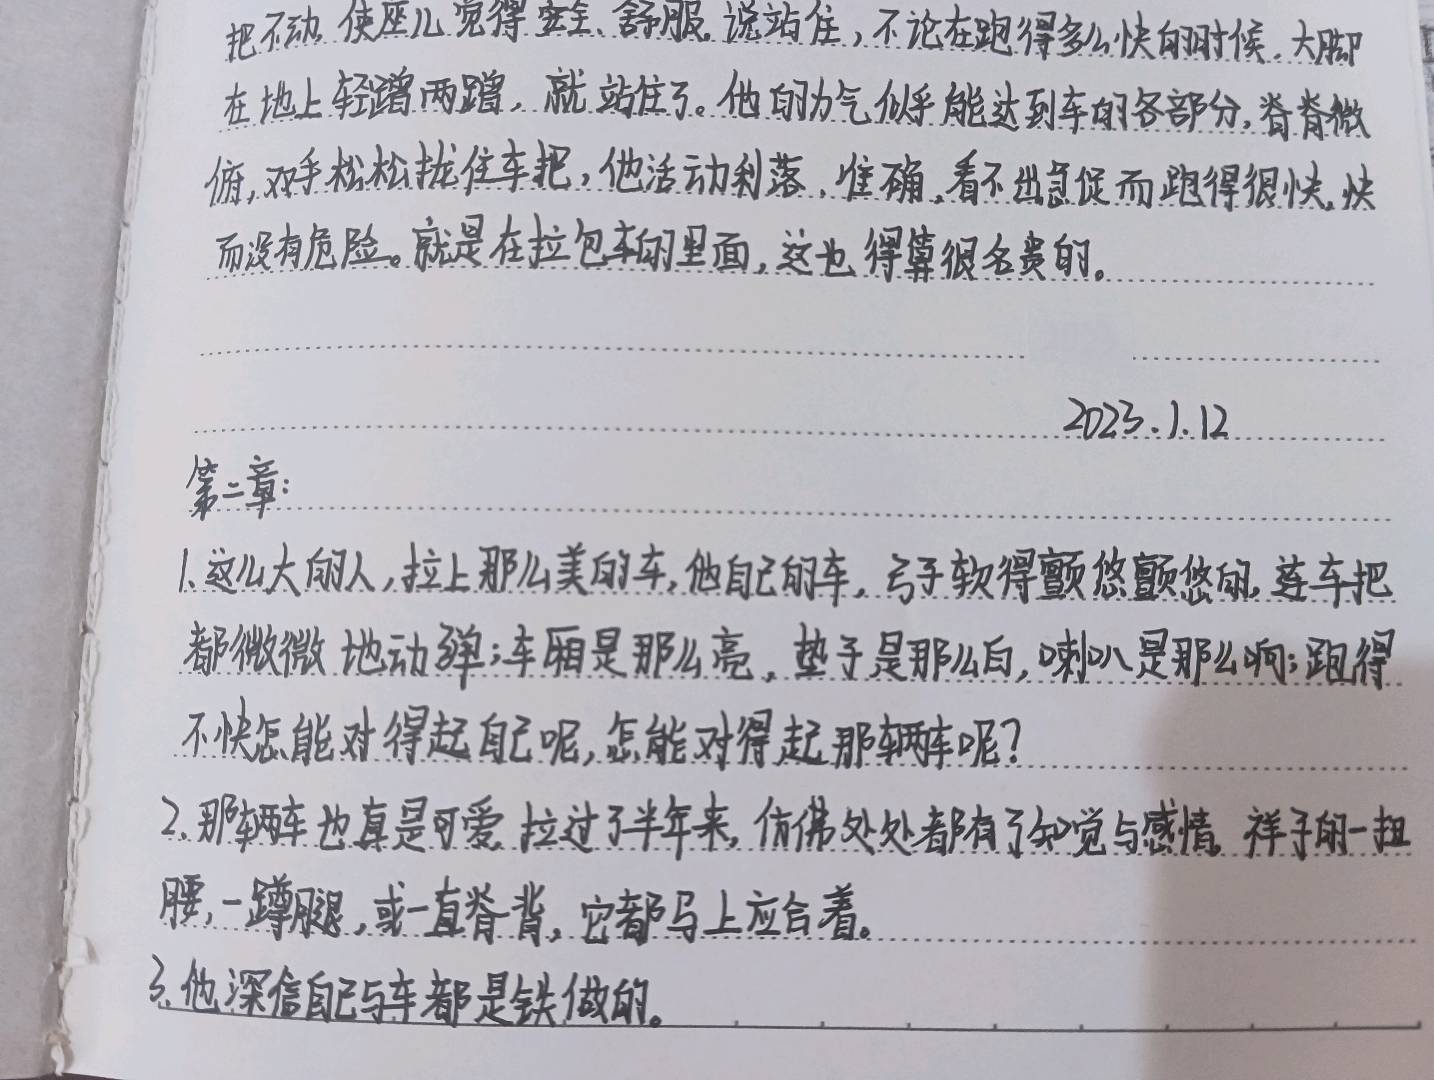 把不动,使座儿觉得安全、舒服。说站住,不论在跑得多么快的时候,大脚
在地上轻蹭两蹭,就站住了。他的力气似乎能达到车的各部分,脊脊微
俯,双手松松拢住车把,他活动利落,准确,看不出急促而跑得很快,快
而没有危险。就是在拉包车的里面,这也得算很名贵的。
2023.1.12
第二章:
1.这么大的人,拉上那么美的车,他自己的车,弓子软得颤悠颤悠的,连车把
都微微地动弹;车厢是那么亮,垫子是那么白,喇叭是那么响;跑得
不快怎能对得起自己呢,怎能对得起那辆车呢?
2.那辆车也真是可爱,拉过了半年来,仿佛处处都有了知觉与感情,祥子的一扭
腰,一蹲腿,或一直脊背,它都马上应合着。
3.他深信自己与车都是铁做的。